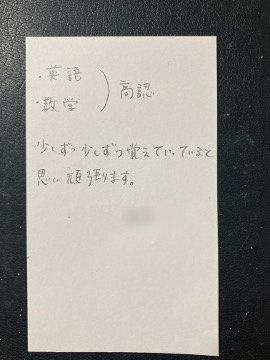 ・英語
・数学
) 高認
少しずつ少しずつ覚えていっていると
思い頑張ります。